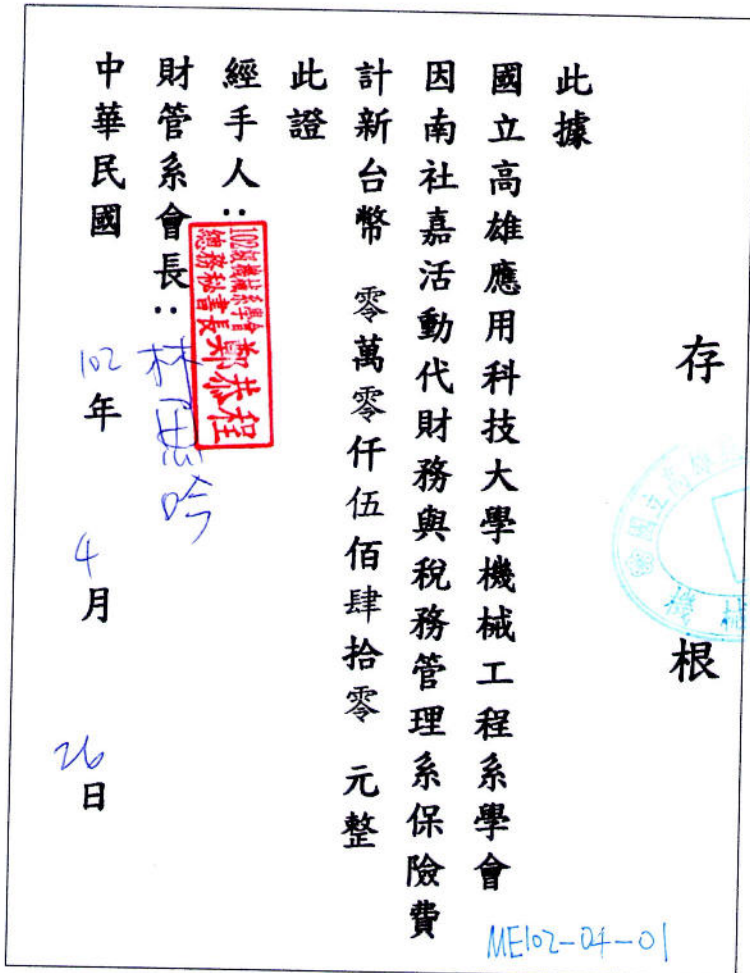 存根
國立高
機械
此據
國立高雄應用科技大學機械工程系學會
因南社嘉活動代財務與稅務管理系保險費
計新台幣 零萬零仟伍佰肆拾零 元整
此證
經手人：
102級機械系學會
總務秘書長
鄭恭程
財管系會長：
中華民國 102年 4月 26日
ME102-04-01